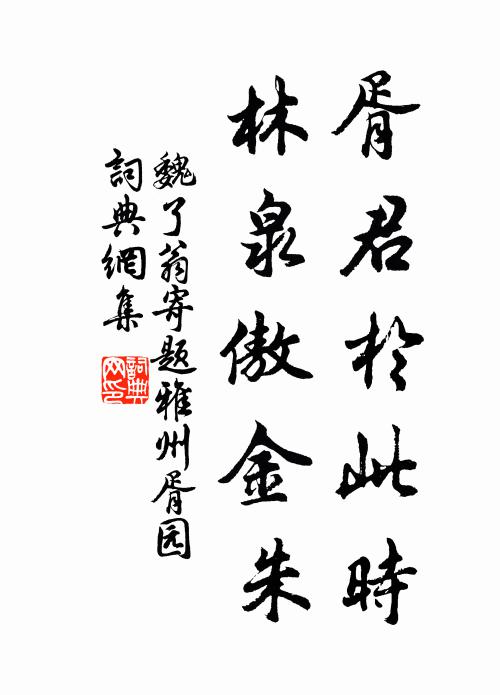 胥君於此時
林泉傲金朱
魏了翁寄题雅州胥园
詞典網集
詞典網印